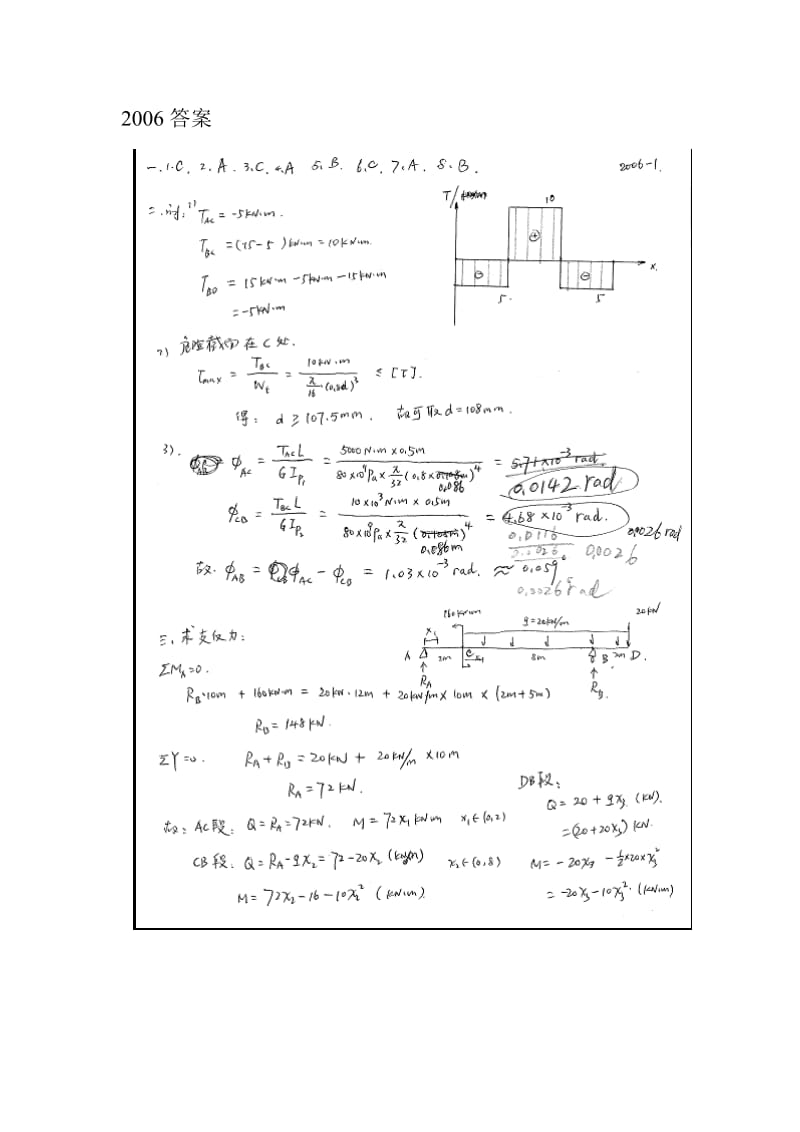 2006 答案
一.1.C. 2.A. 3.C. 4.A 5.B. 6.C. 7.A. 8.B. 2006-1.
二.解: 1) T_AC = -5kN·m.
T_BC = (15-5) kN·m = 10kN·m.
T_BD = 15kN·m - 5kN·m - 15kN·m
= -5kN·m
T/ 10 ⊕ ⊖ ⊖ x.
5. 5
2) 危险截面在C处.
τ_max = T_BC / W_t = 10kN·m / (π/16 (0.8d)^3) ≤ [τ].
得: d ≥ 107.5mm. 故可取d=108mm.
3). φ_AC = T_AC L / G I_P1 = 5000N·m×0.5m / (80×10^9Pa×π/32 (0.8×0.108m)^4) = 5.71×10^-3 rad.
0.086
0.0142 rad
φ_CB = T_BC L / G I_P2 = 10×10^3N·m × 0.5m / (80×10^9Pa×π/32 (0.108m)^4) = 4.68×10^-3 rad. 0.0026 rad
0.086m
0.0116
0.0026 0.0026
故. φ_AB = φ_AC - φ_CB = 1.03×10^-3 rad. ≈ 0.059
0.0026 rad
160kN·m q=20kN/m 20kN
三. 求支反力:
x_1 A 2m C x_2 8m B 2m D.
R_A R_B
ΣM_A=0.
R_B·10m + 160kN·m = 20kN·12m + 20kN/m × 10m × (2m+5m)
R_B = 148kN.
ΣY=0. R_A + R_B = 20kN + 20kN/m × 10m
R_A = 72kN.
DB段:
Q = 20 + qx_3 (kN).
= (20+20x_3) kN.
故: AC段: Q=R_A=72kN. M=72x_1 kN·m x_1∈(0,2)
CB段: Q=R_A-qx_2=72-20x_2 (kN) x_2∈(0,8) M=-20x_3 -½×20×x_3^2
M=72x_2-16-10x_2^2 (kN·m). = -20x_3-10x_3^2. (kN·m)